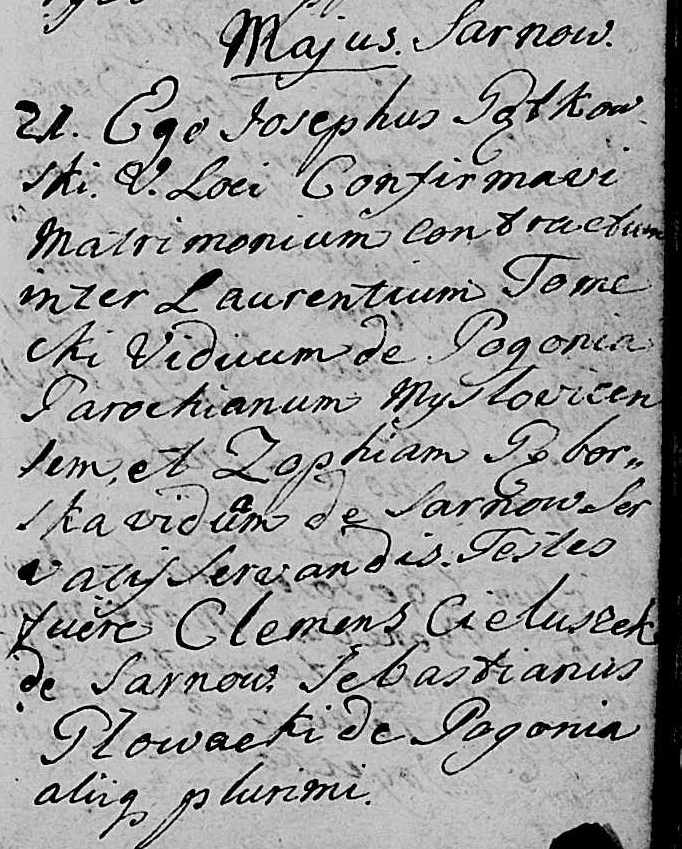 Majus. Sarnow.
21. Ego Josephus Pątkow
ski. V. Loci Confirmavi
Matrimonium contractum
inter Laurentium Tome
cki Viduum de Pogonia
Parochianum Myslovicen
sem, et Zophiam Gębor„
ska viduam de Sarnow. Ser
vatis servandis. Testes
fuere Clemens Cieluszek
de Sarnow. Sebastianus
Głowacki de Pogonia
aliiq plurimi.